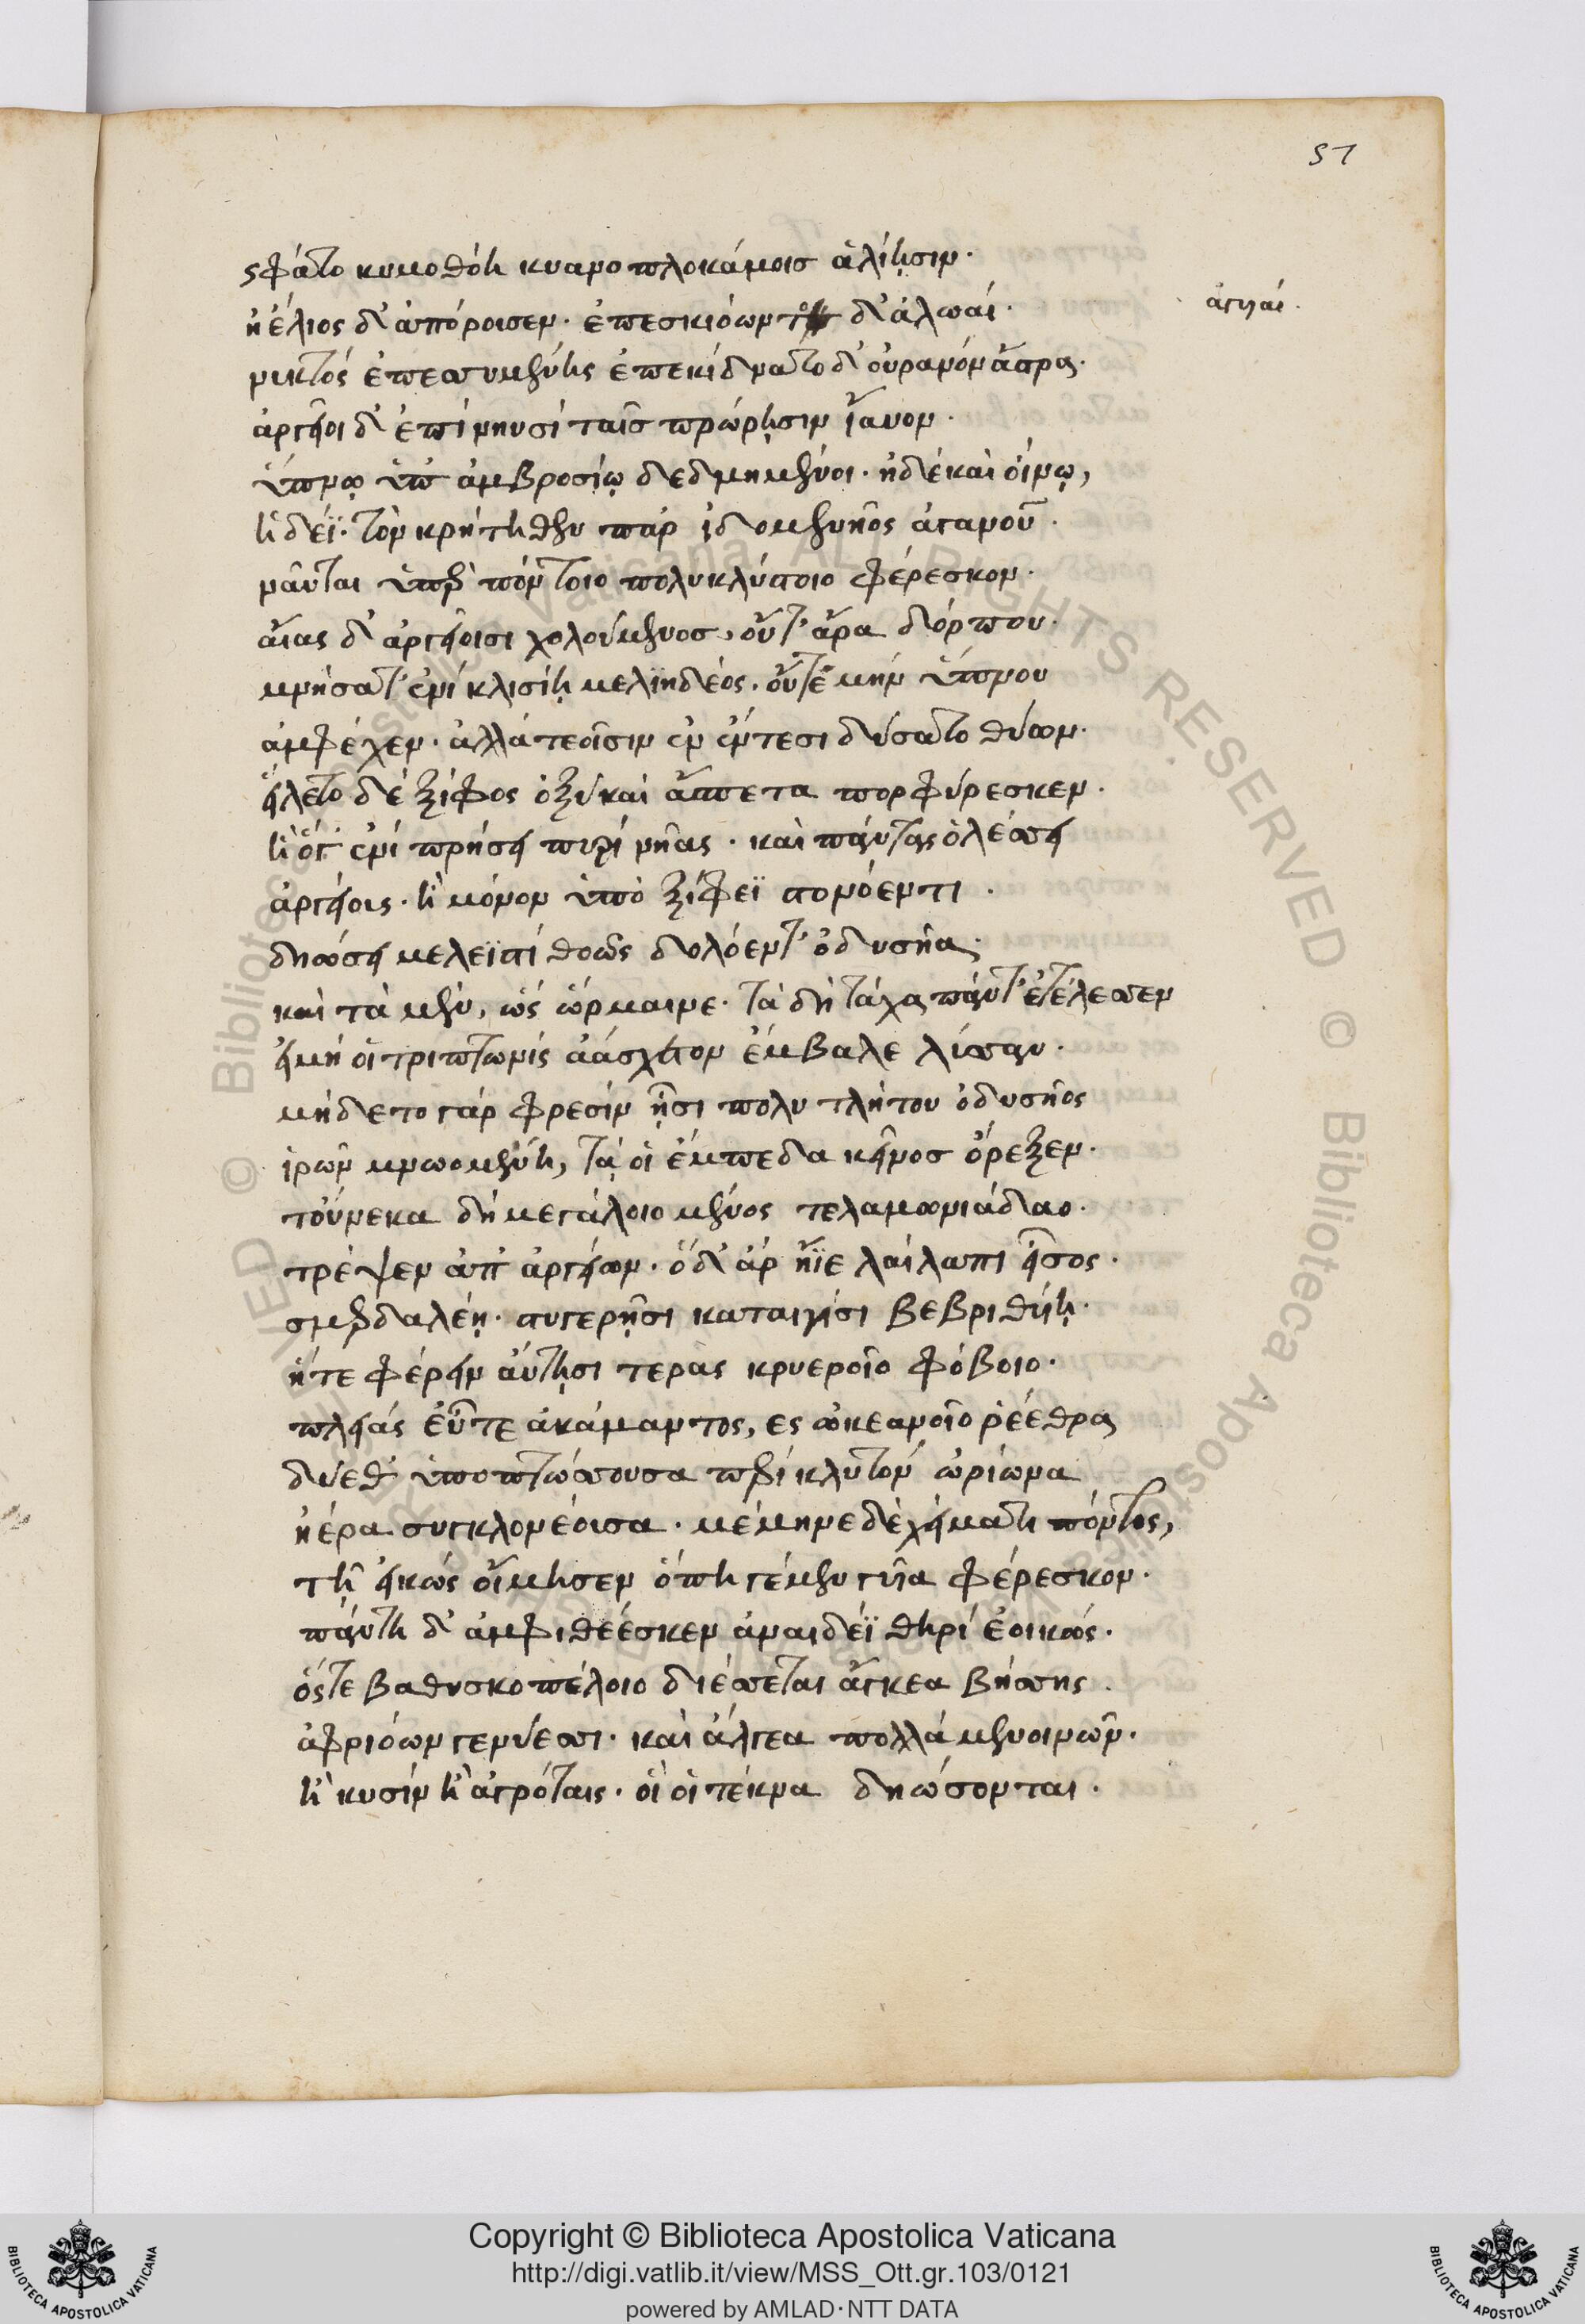 51
σφάτο κυμοθόη κυανοπλοκάμοισ ἁλίῃσιν·
ἠέλιος δ' ἀπόρουσεν· ἐπεσκιόωντο δ' ἀλωαί· ἀγυιαί.
νυκτός ἐπεσσυμένης ἐπεκίδνατο δ' οὐρανόν ἄστρα·
ἀργεῖοι δ' ἐπί νηυσί ταῖσ πρώρῃσιν ἴαυον·
ὕπνῳ ὑπ' ἀμβροσίῳ δεδμημένοι· ἠδέ καὶ οἴνῳ,
ἡδέϊ· τὸν κρήτηθεν παρ' ἰδομενῆος ἀγαυοῦ·
ναῦται ὑπὲρ πόντοιο πολυκλύστοιο φέρεσκον·
αἴας δ' ἀργείοισι χολούμενοσ, οὔτ' ἄρα δόρπου·
μνήσατ' ἐνί κλισίῃ μελιηδέος· οὔτέ μην ὕπνου
ἀμφέχεν· ἀλλά τεοῖσιν ἐν ἔντεσι δύσατο θύων·
εἵλετο δέ ξίφος ὀξύ καὶ ἄσπετα πορφύρεσκεν·
ἢ ὅγ' ἐνί πρήσει πυρί νῆας· καὶ πάντας ὀλέσσει
ἀργείοις· ἢ μόνον ὑπὸ ξίφεϊ στονόεντι·
δηώσει μελεϊστί θοῶς δολόεντ' ὀδυσῆα·
καὶ τὰ μέν, ὡς ὥρμαινε· τὰ δή τάχα πάντ' ἐτέλεσσεν
εἰμή οἱ τριτωνίς ἀάσχετον ἔμβαλε λύσσαν·
μήδετο γάρ φρεσίν ᾗσι πολυτλήτου ὀδυσῆος
ἱρῶν μνωομένη, τά οἱ ἔμπεδα κεῖνοσ ὄρεξεν·
τοὔνεκα δή μεγάλοιο μένος τελαμωνιάδαο·
τρέψεν ἀπ' ἀργείων· ὁ δ' ἄρ ἤϊε λαίλαπι εἶσος·
σμερδαλέῃ· στυγερῇσι καταιγίσι βεβριθυίῃ·
ἥτε φέρειν αὔτῃσι τέρας κρυεροῖο φόβοιο·
πλειάς εὖτε ἀκάμαντος, ες ὠκεανοῖο ῥέεθρα
δύεθ' ὑποπτώσσουσα περί κλυτόν ὠρίωνα
ἠέρα συγκλονέοισα· μέμηνε δὲ χείματι πόντος,
τῇ εἰκώς οἴμησεν ὅπη γέμεν γυῖα φέρεσκον·
πάντη δ' ἀμφιθέεσκεν ἀναιδέϊ θηρί ἐοικώς·
ὅστε βαθυσκοπέλοιο διέσσεται ἄγκεα βήσσης·
ἀφριόων γενύεσσι· καὶ ἄλγεα πολλά μενοινῶν·
ἢ κυσίν ἢ ἀγρόταις· οἵ οἱ τέκνα δηώσονται·
Copyright © Biblioteca Apostolica Vaticana
http://digi.vatlib.it/view/MSS_Ott.gr.103/0121
powered by AMLAD·NTT DATA